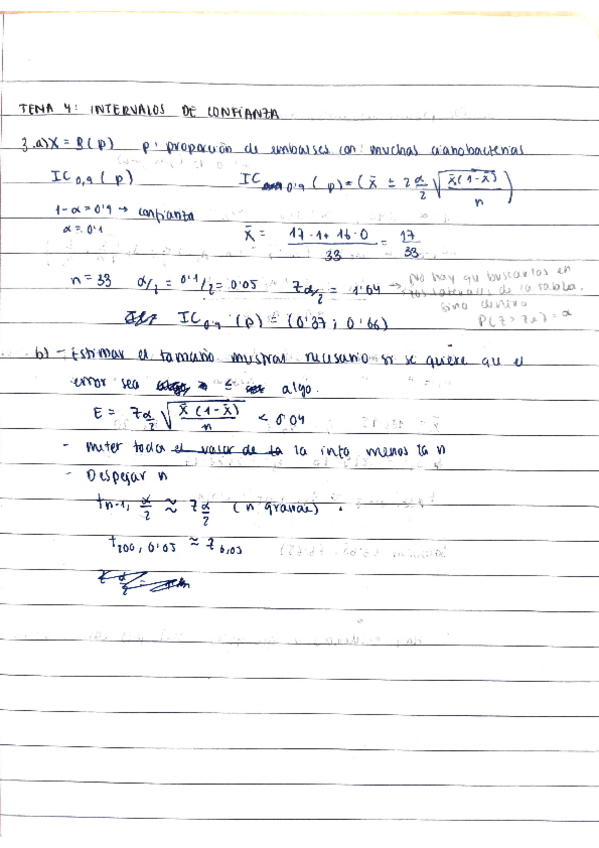 TEMA 4: INTERVALOS DE CONFIANZA
3.a) X = B(p) p: proporción de embalses con muchas cianobacterias
IC0,9 (p) IC0'9 (p) = ( x̄ ± z α/2 √( x̄(1-x̄) / n ) )
1-α = 0'9 → confianza
α = 0.1
x̄ = (17·1 + 16·0) / 33 = 17/33
n = 33 α/2 = 0'1/2 = 0'05 zα/2 = 1'64 → No hay que buscarlos en los laterales de la tabla, sino dentro
P(Z > zα) = α
IC0'9 (p) = (0'37; 0'66)
b) - Estimar el tamaño muestral necesario si se quiere que el
error sea ≤ algo.
E = z α/2 √( x̄(1-x̄) / n ) < 0'04
- Meter toda el valor de la la info menos la n
- Despejar n
tn-1, α/2 ≈ z α/2 (n grande).
t200, 0'03 ≈ z0,03